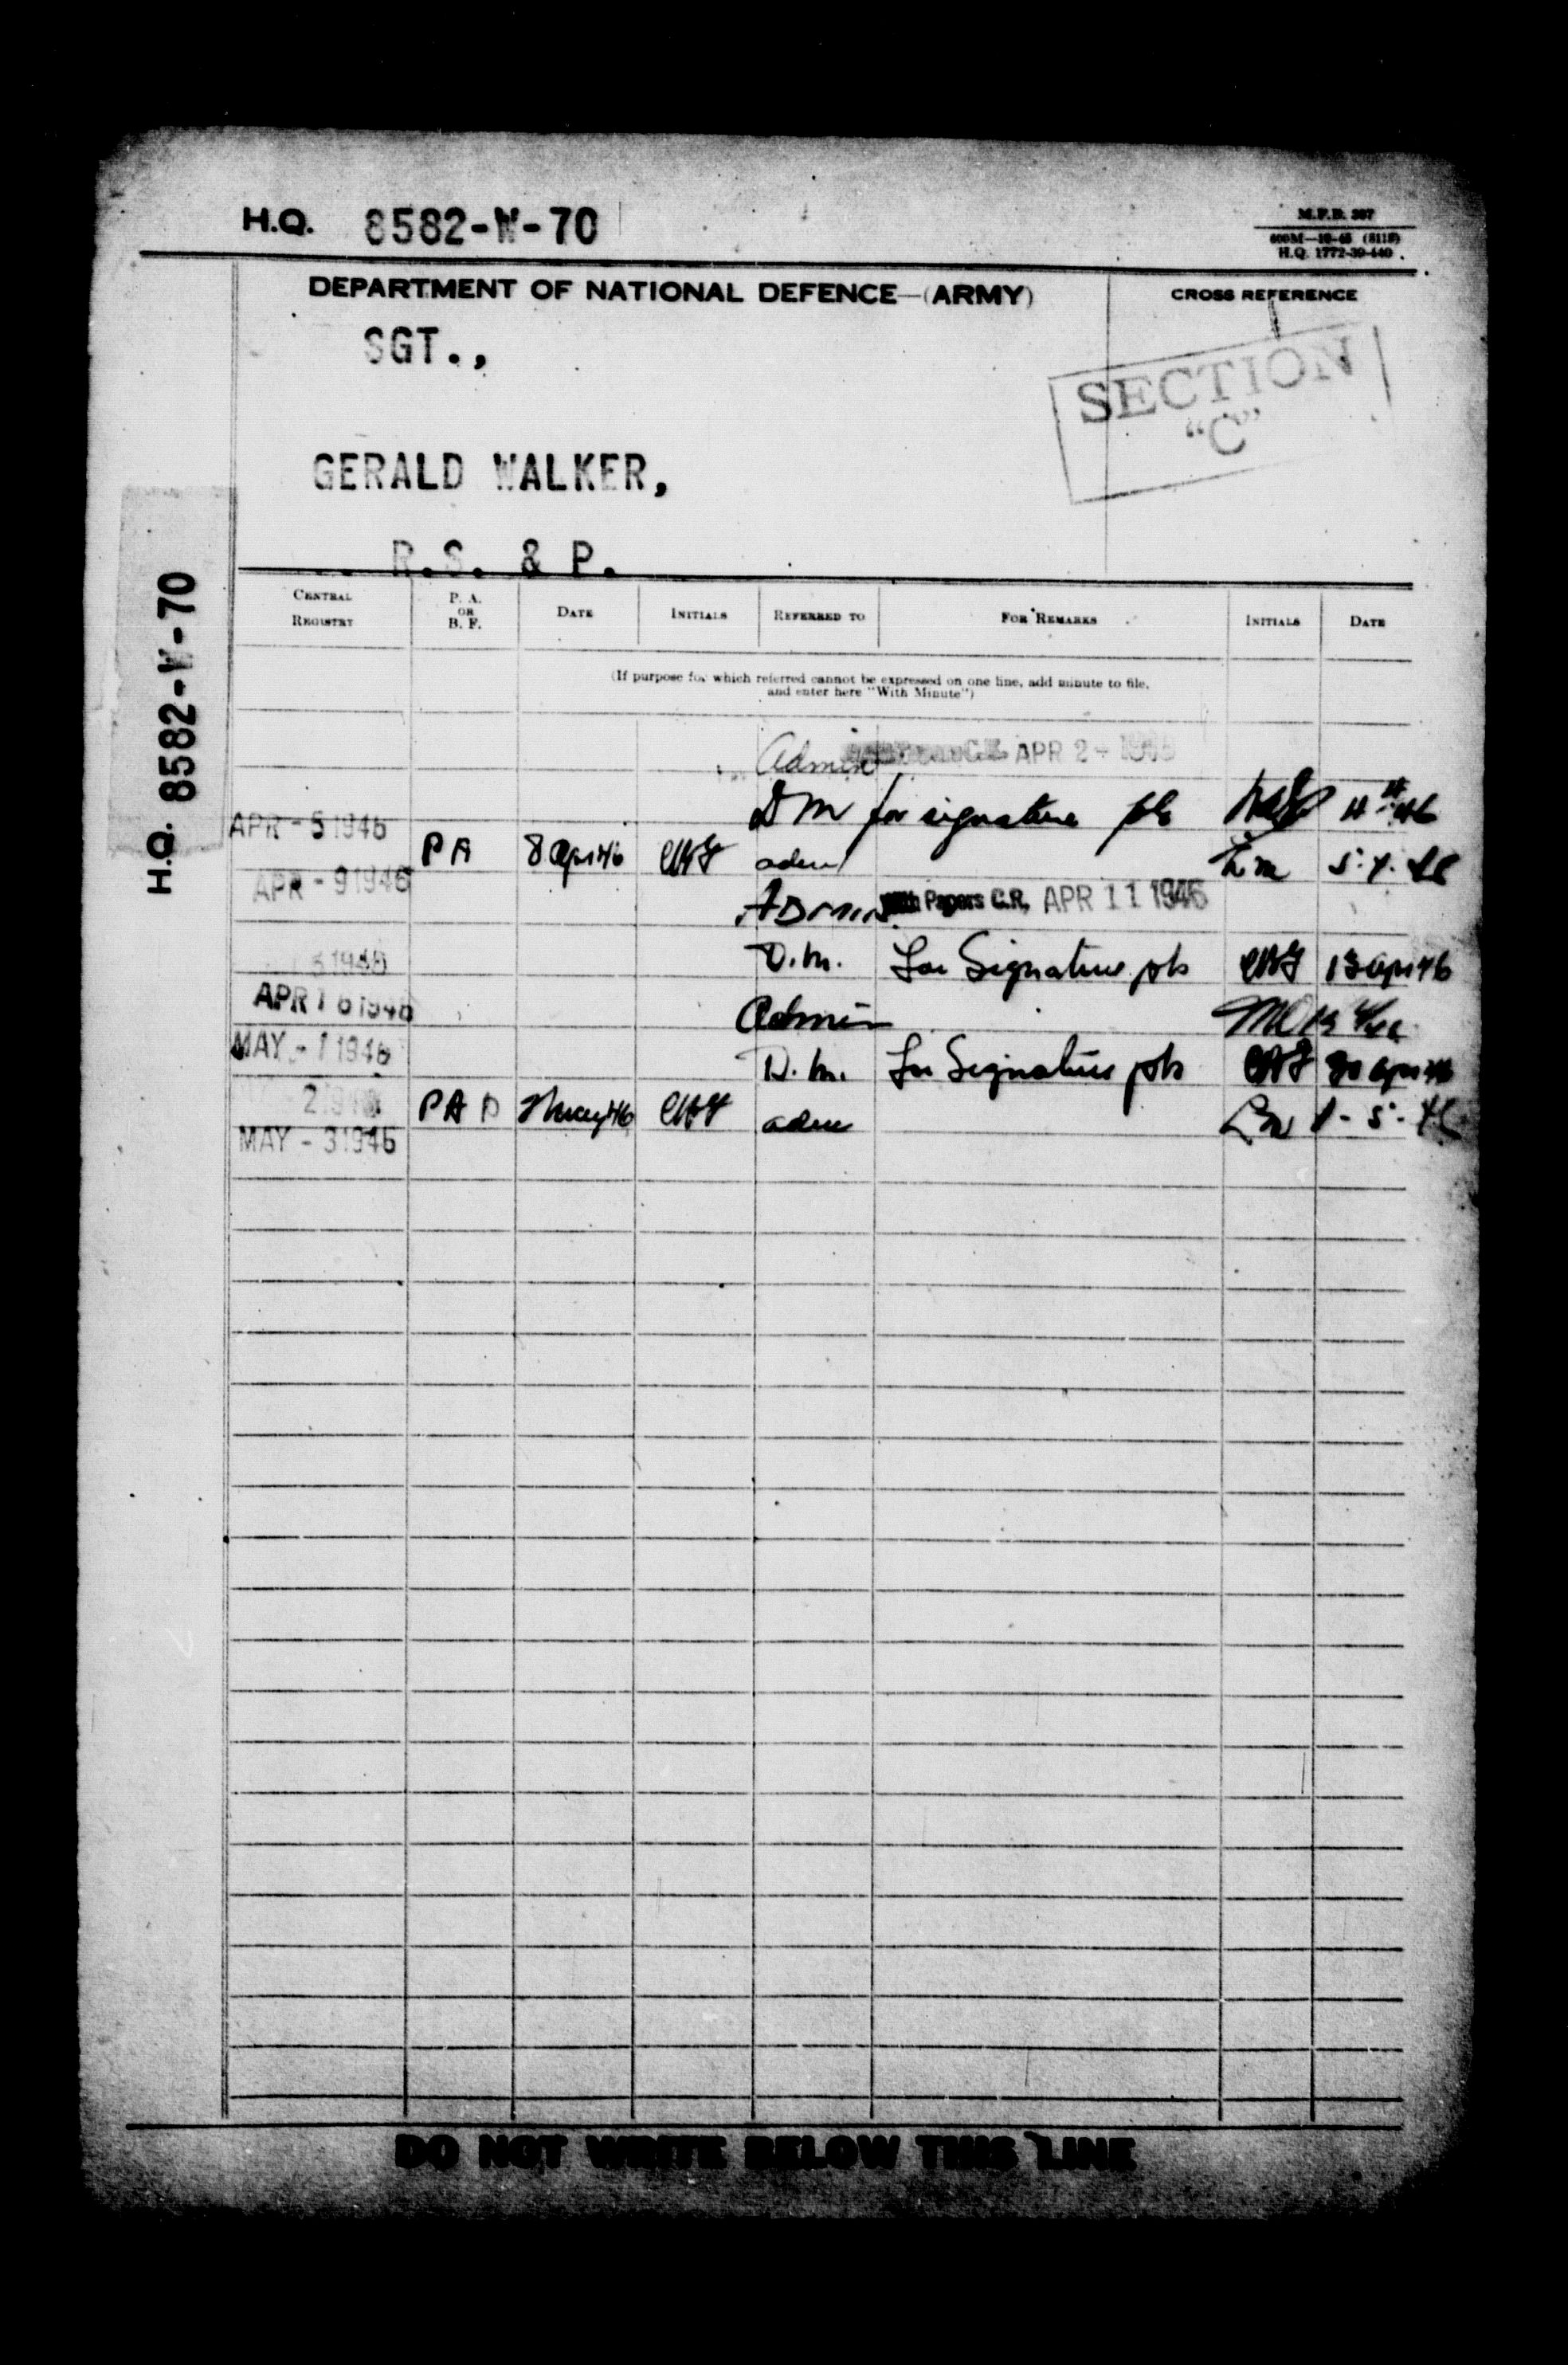 H.Q. 8582-W-70
M.F.B. 367
400M—10-45 (8118)
H.Q. 1772-39-440
DEPARTMENT OF NATIONAL DEFENCE—(ARMY)
CROSS REFERENCE
SGT.,
SECTION
"C"
GERALD WALKER,
R.S. & P.
H.Q. 8582-W-70
CENTRAL REGISTRY P. A. OR B. F. DATE INITIALS REFERRED TO FOR REMARKS INITIALS DATE
(If purpose for which referred cannot be expressed on one line, add minute to file,
and enter here "With Minute")
Admin APR 2 - 1946
DM for signature pls
APR - 5 1946 PA 8 Apr 46 adm 5.4.46
APR - 9 1946
ADMIN With Papers C.R. APR 11 1946
1946 D.M. For Signature pls 15 Apr 46
APR 16 1946 Admin
MAY - 1 1946 D.M. For Signature pls 30 Apr 46
2 1946 PA 2 May 46 adm 1-5-46
MAY - 3 1946
DO NOT WRITE BELOW THIS LINE